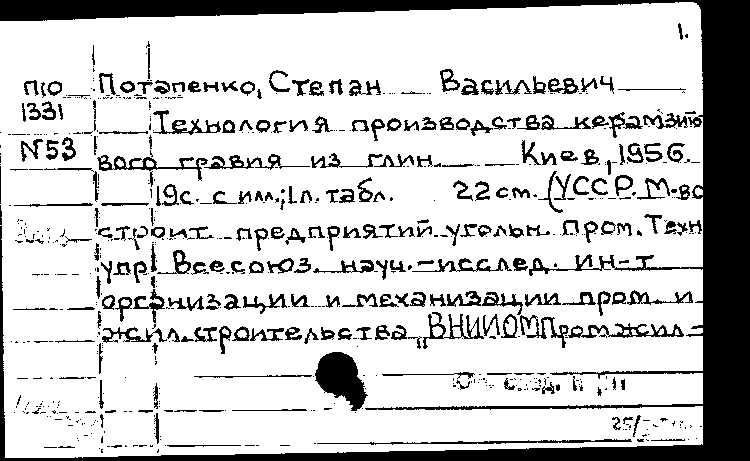 1.
П10 Потапенко, Степан Васильевич
1331 Технология производства керамзито
N53 вого гравия из глин. Киев, 1956.
19с. с илл.; 1л. табл. 22 см. (УССР. М-во
строит. предприятий угольн. пром. Техн
упр. Всесоюз. науч.-исслед. ин-т
организации и механизации пром. и
жил. строительства „ВНИИОМПромжил-
25/